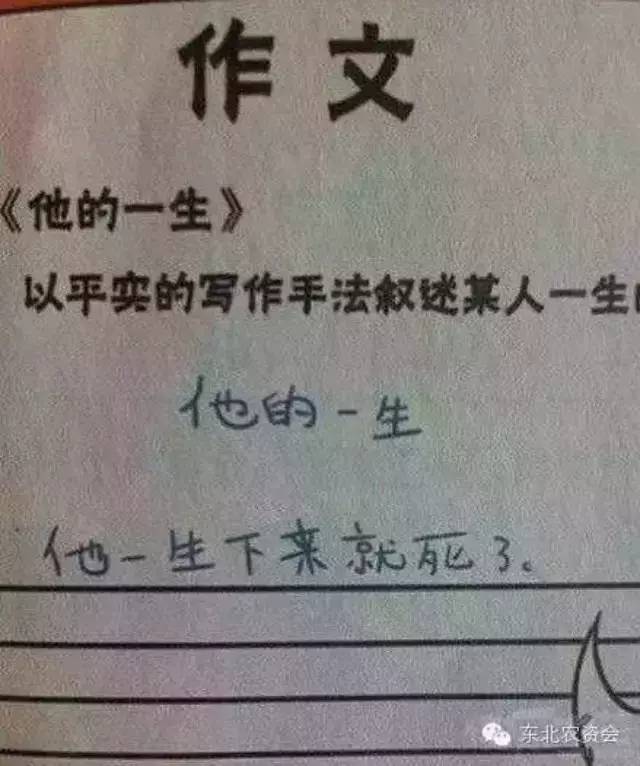 作文
《他的一生》
以平实的写作手法叙述某人一生
他的一生
他一生下来就死了。
东北农资会